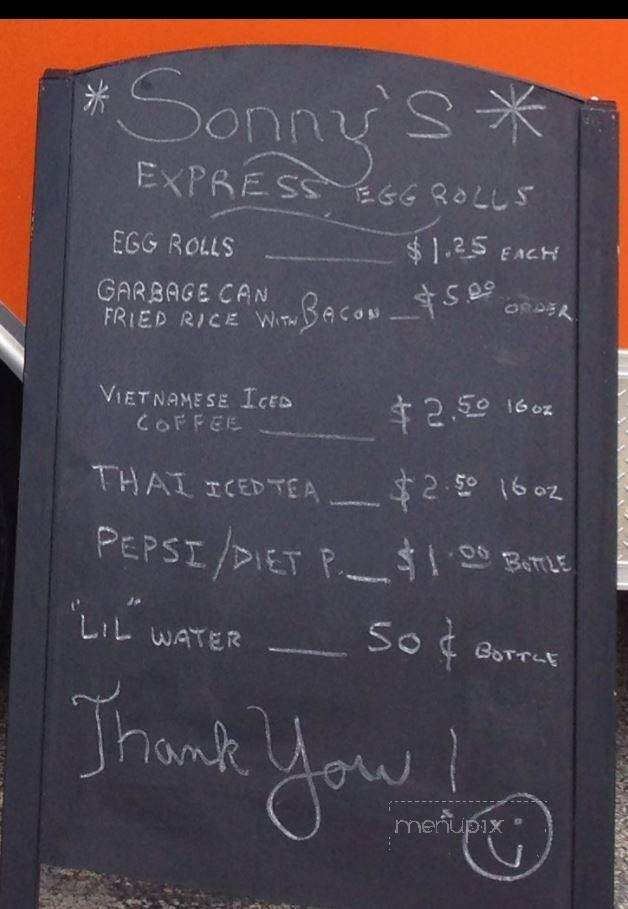 * Sonny's *
EXPRESS EGG ROLLS
EGG ROLLS ____ $1.25 EACH
GARBAGE CAN
FRIED RICE WITH BACON _ $5.00 ORDER
VIETNAMESE ICED
COFFEE ____ $2.50 16 oz
THAI ICED TEA __ $2.50 16 oz
PEPSI/DIET P. __ $1.00 BOTTLE
"LIL" WATER ___ 50 ¢ BOTTLE
Thank You!
menupix